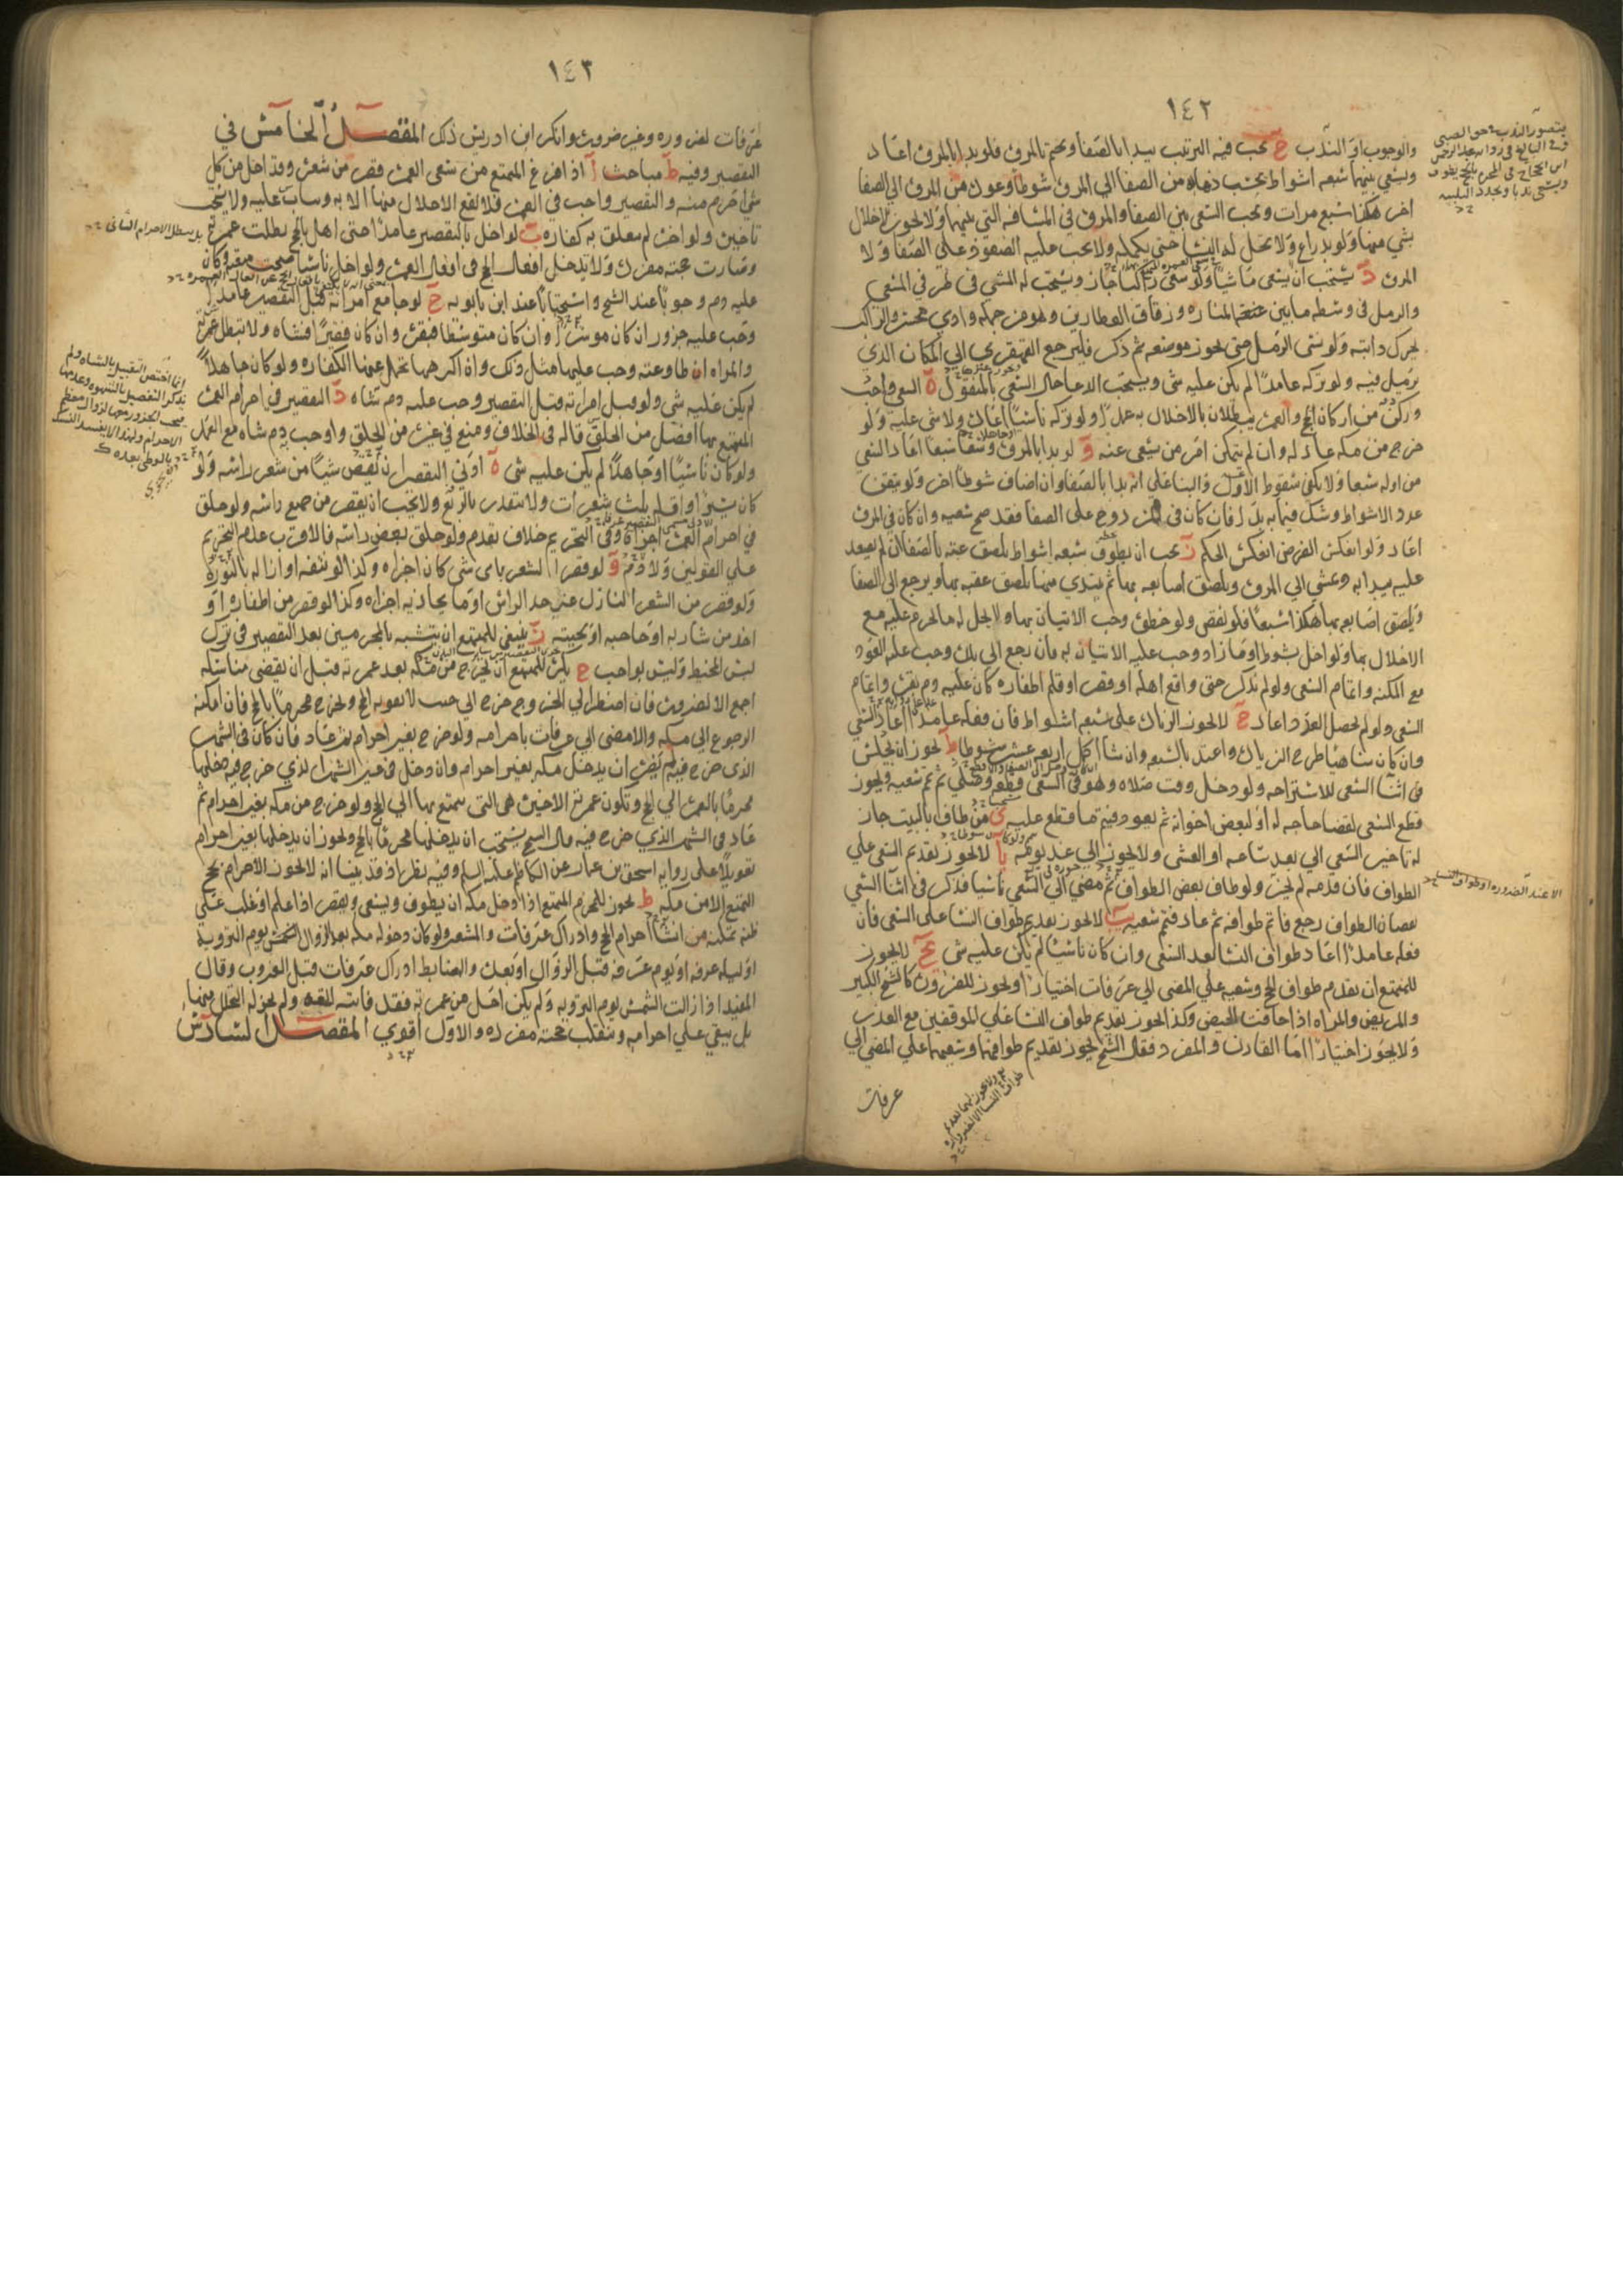 ١٤٢
والوجوب او الندب ج يجب فيه الترتيب يبدا بالصفا ويختم بالمروة فلو بدا بالمروة اعاد
ويسعى بينهما سبعة اشواط يحتسب ذهابه من الصفا الى المروة شوطا وعوده من المروة الى الصفا
اخر هكذا سبع مرات ويجب السعى بين الصفا والمروة في المسافة التي بينهما ولا يجوز الاخلال
بشي منها ولو بذراع ولا تحل له النساء حتى يكمله ولا يجب عليه الصعود على الصفا ولا
المروة د يستحب ان يسعى ماشيا ولو سعى راكبا جاز ويستحب له المشي في طرفي المسعى
والرمل في وسطه ما بين المنارة وزقاق العطارين ولو من جهة وادي محسر والراكب
يحرك دابته ولو نسى الرمل حتى يجوز موضعه ثم ذكر فليرجع القهقرى الى المكان الذي
يرمل فيه ولو تركه عامدا لم يكن عليه شى ويستحب الدعا حال السعى بالمنقول ه السعى واجب
وركن من اركان الحج والعمرة يبطلان بالاخلال به عمدا ولو تركه ناسيا اعاده ولا شى عليه ولو
خرج من مكة عاد له وان لم يتمكن امر من يسعى عنه و لو بدا بالمروة وسعى سبعا اعاد السعى
من اوله سبعا ولا يكفي سقوط الاول والبنا على انه بدا بالصفا وان اضاف شوطا اخر ولو تيقن
عدد الاشواط وشك فيما به بدا فان كان في المزدوج على الصفا فقد صح سعيه وان كان في المروة
اعاد ولو انعكس الفرض انعكس الحكم ز يجب ان يطوف سبعة اشواط يلصق عقبه بالصفا ان لم يصعد
عليه يبدا به ويمشي الى المروة ويلصق اصابعه بها ثم يبتدي منها يلصق عقبه بها ويرجع الى الصفا
ويلصق اصابعه بها هكذا سبعا فلو نقص ولو خطوة وجب الاتيان بها ولا يحل له ما يحرم عليه مع
الاخلال بها ولو اخل بشوط او ما زاد وجب عليه الاتيان به فان رجع الى بلده وجب عليه العود
مع المكنة واتمام السعى ولو لم يذكر حتى واقع اهله او قصر او قلم اظفاره كان عليه دم بقرة واتمام
السعى ولو لم يحصل العدد اعاد ح لا يجوز الزيادة على سبعة اشواط فان فعله عامدا اعاد السعى
وان كان ساهيا طرح الزيادة واعتد بالسبعة وان شا اكمل اربعة عشر شوطا ط يجوز ان يجلس
في اثنا السعى للاستراحة ولو دخل وقت صلاة وهو في السعى قطعه وصلى ثم تمم سعيه ويجوز
قطع السعى لقضا حاجة له او لبعض اخوانه ثم يعود فيتم ما قطع عليه ى من طاف بالبيت جاز
له تاخير السعى الى بعد ساعة او العشى ولا يجوز الى غد يومه يا لا يجوز تقديم السعى على
الطواف فان قدمه لم يجز ولو طاف بعض الطواف ثم مضى الى السعى ناسيا فذكر في اثنا السعى
نقصان الطواف رجع فاتم طوافه ثم عاد فتمم سعيه يب لا يجوز تقديم طواف النسا على السعى فان
فعله عامدا اعاد طواف النسا بعد السعى وان كان ناسيا لم يكن عليه شى يج لا يجوز
للمتمتع ان يقدم طواف الحج وسعيه على المضى الى عرفات اختيارا ويجوز للضرورة كالشيخ الكبير
والمريض والمراة اذا خافت الحيض وكذا يجوز تقديم طواف النسا على الموقفين مع العذر
ولا يجوز اختيارا اما القارن والمفرد فقال الشيخ يجوز تقديم طوافهما وسعيهما على المضى الى
عرفات
الا عند الضرورة او طواف النسا
١٤٣
عرفات لضرورة وغير ضرورة وانكر ابن ادريس ذلك المقصد الخامس في
التقصير وفيه ط مباحث ا اذا فرغ المتمتع من سعى العمرة قصر من شعره وقد احل من كل
شى احرم منه والتقصير واجب في العمرة فلا يقع الاحلال منها الا به ويثاب عليه ولا يستحب
تاخيره ولو اخره لم يتعلق به كفارة ب لو اخل بالتقصير عامدا حتى اهل بالحج بطلت عمرته
وصارت حجته مفردة ولا يدخل افعال الحج في افعال العمرة ولو اخل ناسيا صحت متعته وكان
عليه دم وجوبا عند الشيخ واستحبابا عند ابن بابويه ج لو جامع امراته قبل التقصير عامدا
وجب عليه جزور ان كان موسرا وان كان متوسطا فبقرة وان كان فقيرا فشاة ولا تبطل عمرته
والمراة ان طاوعته وجب عليها مثل ذلك وان اكرهها تحمل عنها الكفارة ولو كان جاهلا
لم يكن عليه شى ولو قبل امراته قبل التقصير وجب عليه دم شاة د التقصير في احرام العمرة
المتمتع بها افضل من الحلق قاله في الخلاف ومنع في غيره من الحلق واوجب دم شاة مع العمد
ولو كان ناسيا او جاهلا لم يكن عليه شى ه ادنى التقصير ان يقص شيا من شعر راسه ولو
كان يسيرا واقله ثلث شعرات ولا يتقدر بالربع ولا يجب ان يقصر من جميع راسه ولو حلق
في احرام العمرة اجزاه وفي التحريم خلاف تقدم ولو حلق بعض راسه فالاقرب عدم التحريم
على القولين ولا دم و لو قصر الشعر باى شى كان اجزاه وكذا لو نتفه او ازاله بالنورة
ولو قصر من الشعر النازل عن حد الراس او ما يحاذيه اجزاه وكذا لو قصر من اظفاره او
اخذ من شاربه او حاجبه او لحيته ز ينبغي للمتمتع ان يتشبه بالمحرمين بعد التقصير في ترك
لبس المخيط وليس بواجب ح يكره للمتمتع ان يخرج من مكة بعد عمرته قبل ان يقضي مناسكه
اجمع الا لضرورة فان اضطر الى الخروج خرج الى حيث لا يفوته الحج ويخرج محرما بالحج فان امكنه
الرجوع الى مكة والا مضى الى عرفات باحرامه ولو خرج بغير احرام ثم عاد فان كان في الشهر
الذي خرج فيه لم يضره ان يدخل مكة بغير احرام وان دخل في غير الشهر الذي خرج فيه دخلها
محرما بالعمرة الى الحج وتكون عمرته الاخيرة هى التى يتمتع بها الى الحج ولو خرج من مكة بغير احرام ثم
عاد في الشهر الذي خرج فيه قال الشيخ يستحب ان يدخلها محرما بالحج ويجوز ان يدخلها بغير احرام
تعويلا على رواية اسحق بن عمار عن الكاظم عليه السلم وفيه نظر اذ قد بينا انه لا يجوز الاحرام بحج
التمتع الا من مكة ط يجوز للمحرم المتمتع اذا دخل مكة ان يطوف ويسعى ويقصر اذا علم او غلب على
ظنه تمكنه من انشا احرام الحج وادراك عرفات والمشعر ولو كان دخوله مكة بعد الزوال الشمس يوم التروية
او ليلة عرفة او يوم عرفة قبل الزوال او بعده والضابط ادراك عرفات قبل الغروب وقال
المفيد اذا زالت الشمس يوم التروية ولم يكن احل من عمرته فقد فاتته المتعة ولم يجز له التحلل منها
بل يبقى على احرامه وتنقلب حجته مفردة والاول اقوى المقصد السادس
بل يبطل الاحرام الثانى